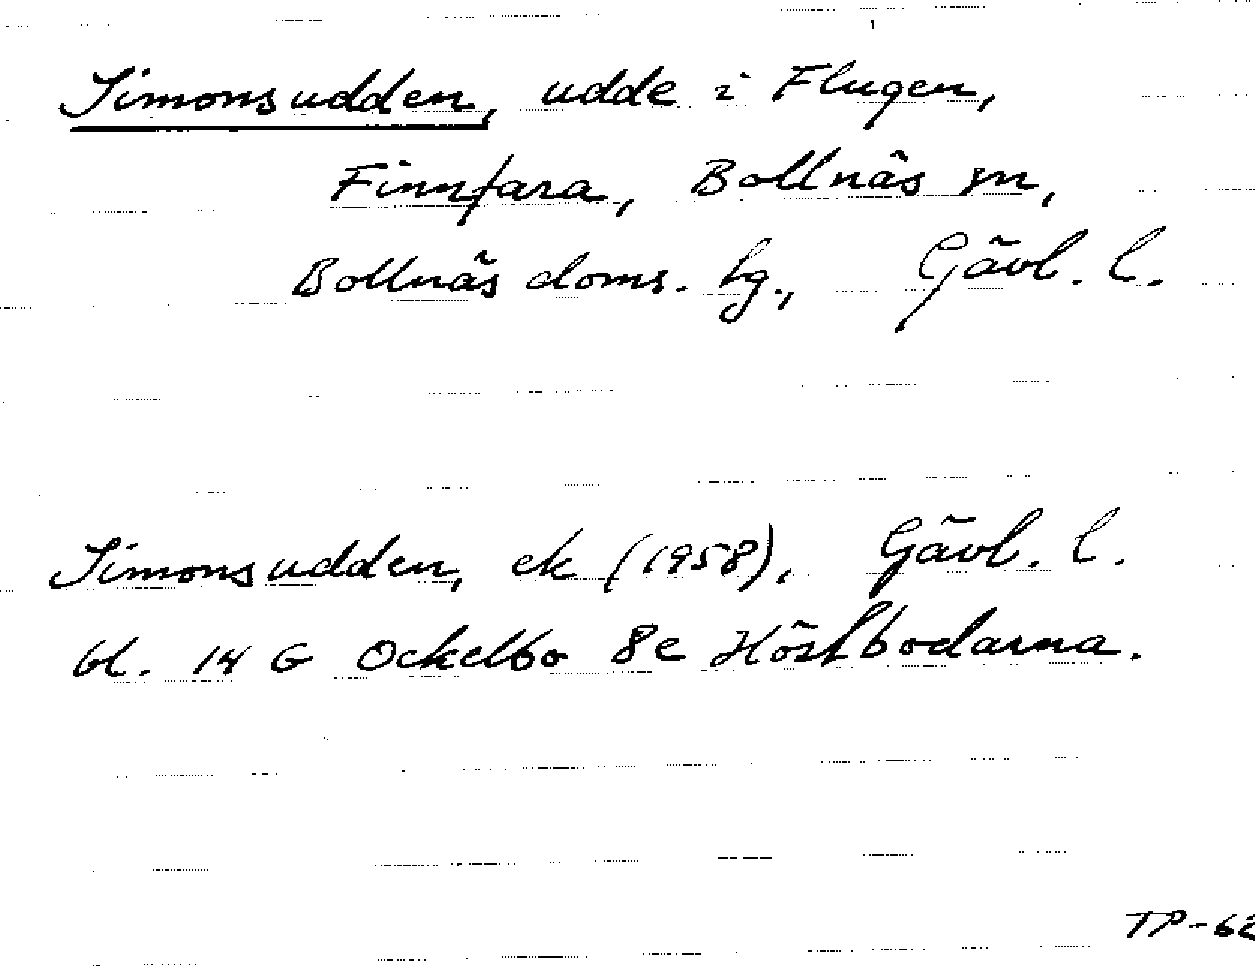 Simonsudden, udde i Flugen,
Finnfara, Bollnäs sn,
Bollnäs doms. hg., Gävl. l.
Simonsudden, ek (1958), Gävl. l.
bl. 14 G Ockelbo 8e Höstbodarna.
TP-62